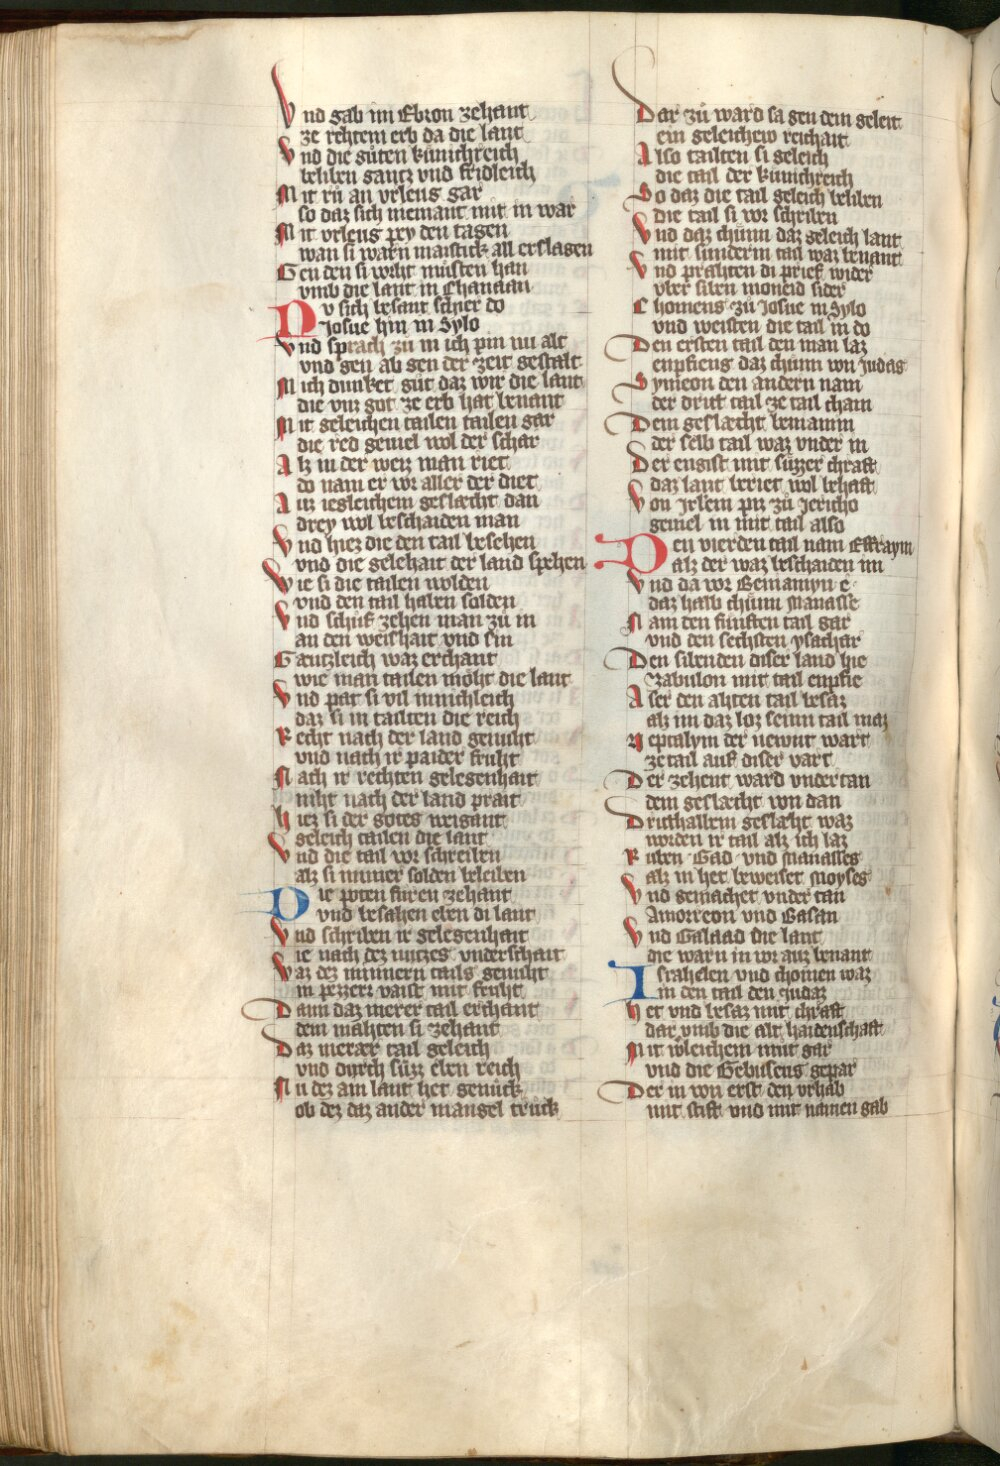 Vnd gab im Ebron zehant
ze rehtem erb da die lant
Vnd die gůten kunichreich
beliben gantz vnd fridleich
Mit rů an vrleug gar
so daz sich niemant mit in war
Mit vrleug pey den tagen
wan si warn maistick all erslagen
Gen den si wiht musten han
vmb die lant in Chanaan
Nv sich besant schier do
Josue hin in Sylo
Vnd sprach zů in ich pin nu alt
vnd gen ab gen der zeit gestalt
Mich dunket gůt daz wir die lant
die vnz got ze erb hat benant
Mit geleichen tailen tailen gar
die red geuiel wol der schar
Alz in der weiz man riet
do nam er vor aller der diet
Auz iegleichem geslæcht dan
drey wol beschaiden man
Vnd hiez die den tail besehen
vnd die gelehait der land spehen
Wie si die tailen wolden
vnd den tail haben solden
Vnd schůf zehen man zů in
an den weishait vnd sin
Gæntzleich waz erchant
wie man tailen möht die lant
Vnd pat si vil innichleich
daz si in tailten die reich
Recht nach der land genuht
vnd nach ir paider fruht
Nach ir rechten gelegenhait
niht nach der land prait
Hiez si der gotes weigant
geleich tailen die lant
Vnd die tail vor schreiben
alz si immer solden beleiben
Die poten fůren zehant
vnd besahen eben di lant
Vnd schriben ir gelegenhait
ie nach dez nutzes vnderschait
Waz dez minnern tails genuht
in pezzerr vaist mit fruht
Dann daz merer tail erchant
dem mahten si zehant
Daz merær tail geleich
vnd durch sůzz eben reich
Nu dez am lant het genuck
ob dez daz ander mangel truck
Dar zů ward sa gen dem geleit
ein geleichew reichait
Also tailten si geleich
die tail der kunichreich
So daz die tail geleich beliben
die tail si vor schriben
Vnd daz chunn daz geleich lant
mit sunderm tail waz benant
Vnd prahten di prief wider
vber siben moneid sider
Chomens zů Josue in Sylo
vnd weisten die tail in do
Den ersten tail den man laz
enpfieng daz chunn von Judas
Symeon den andern nam
der dritt tail ze tail cham
Dem geslæcht beniamin
der selb tail waz vnder in
Der engist mit sůzzer chraft
daz lant beriet wol behaft
Von Jrlem piz zů Jericho
geuiel in mit tail also
Den vierden tail nam Effraym
alz der waz beschaiden im
Vnd da vor Beniamyn e
daz halb chunn Manasse
Nam den funften tail gar
vnd den sechsten ysachar
Den sibenden diser land hie
Zabulon mit tail enpfie
Aser den ahten tail besaz
alz im daz loz seinn tail maz
Neptalym der newnt wart
ze tail auf diser vart
Der zehent ward vndertan
dem geslæcht von dan
Dritthallem geslæht waz
worden ir tail alz ich laz
Ruben Gad vnd Manasses
alz in het beweiset Moyses
Vnd gemachet vnder tan
Amorreon vnd Basan
Vnd Galaad die lant
die warn in vor auz benant
Israhelen vnd chomen waz
in den tail den Judaz
Het vnd besaz mit chraft
dar vmb die alt haidenschaft
Mit weleichem mut gar
vnd die Gebuseus gepar
Der in von erst den vrhab
mit stift vnd mit namen gab